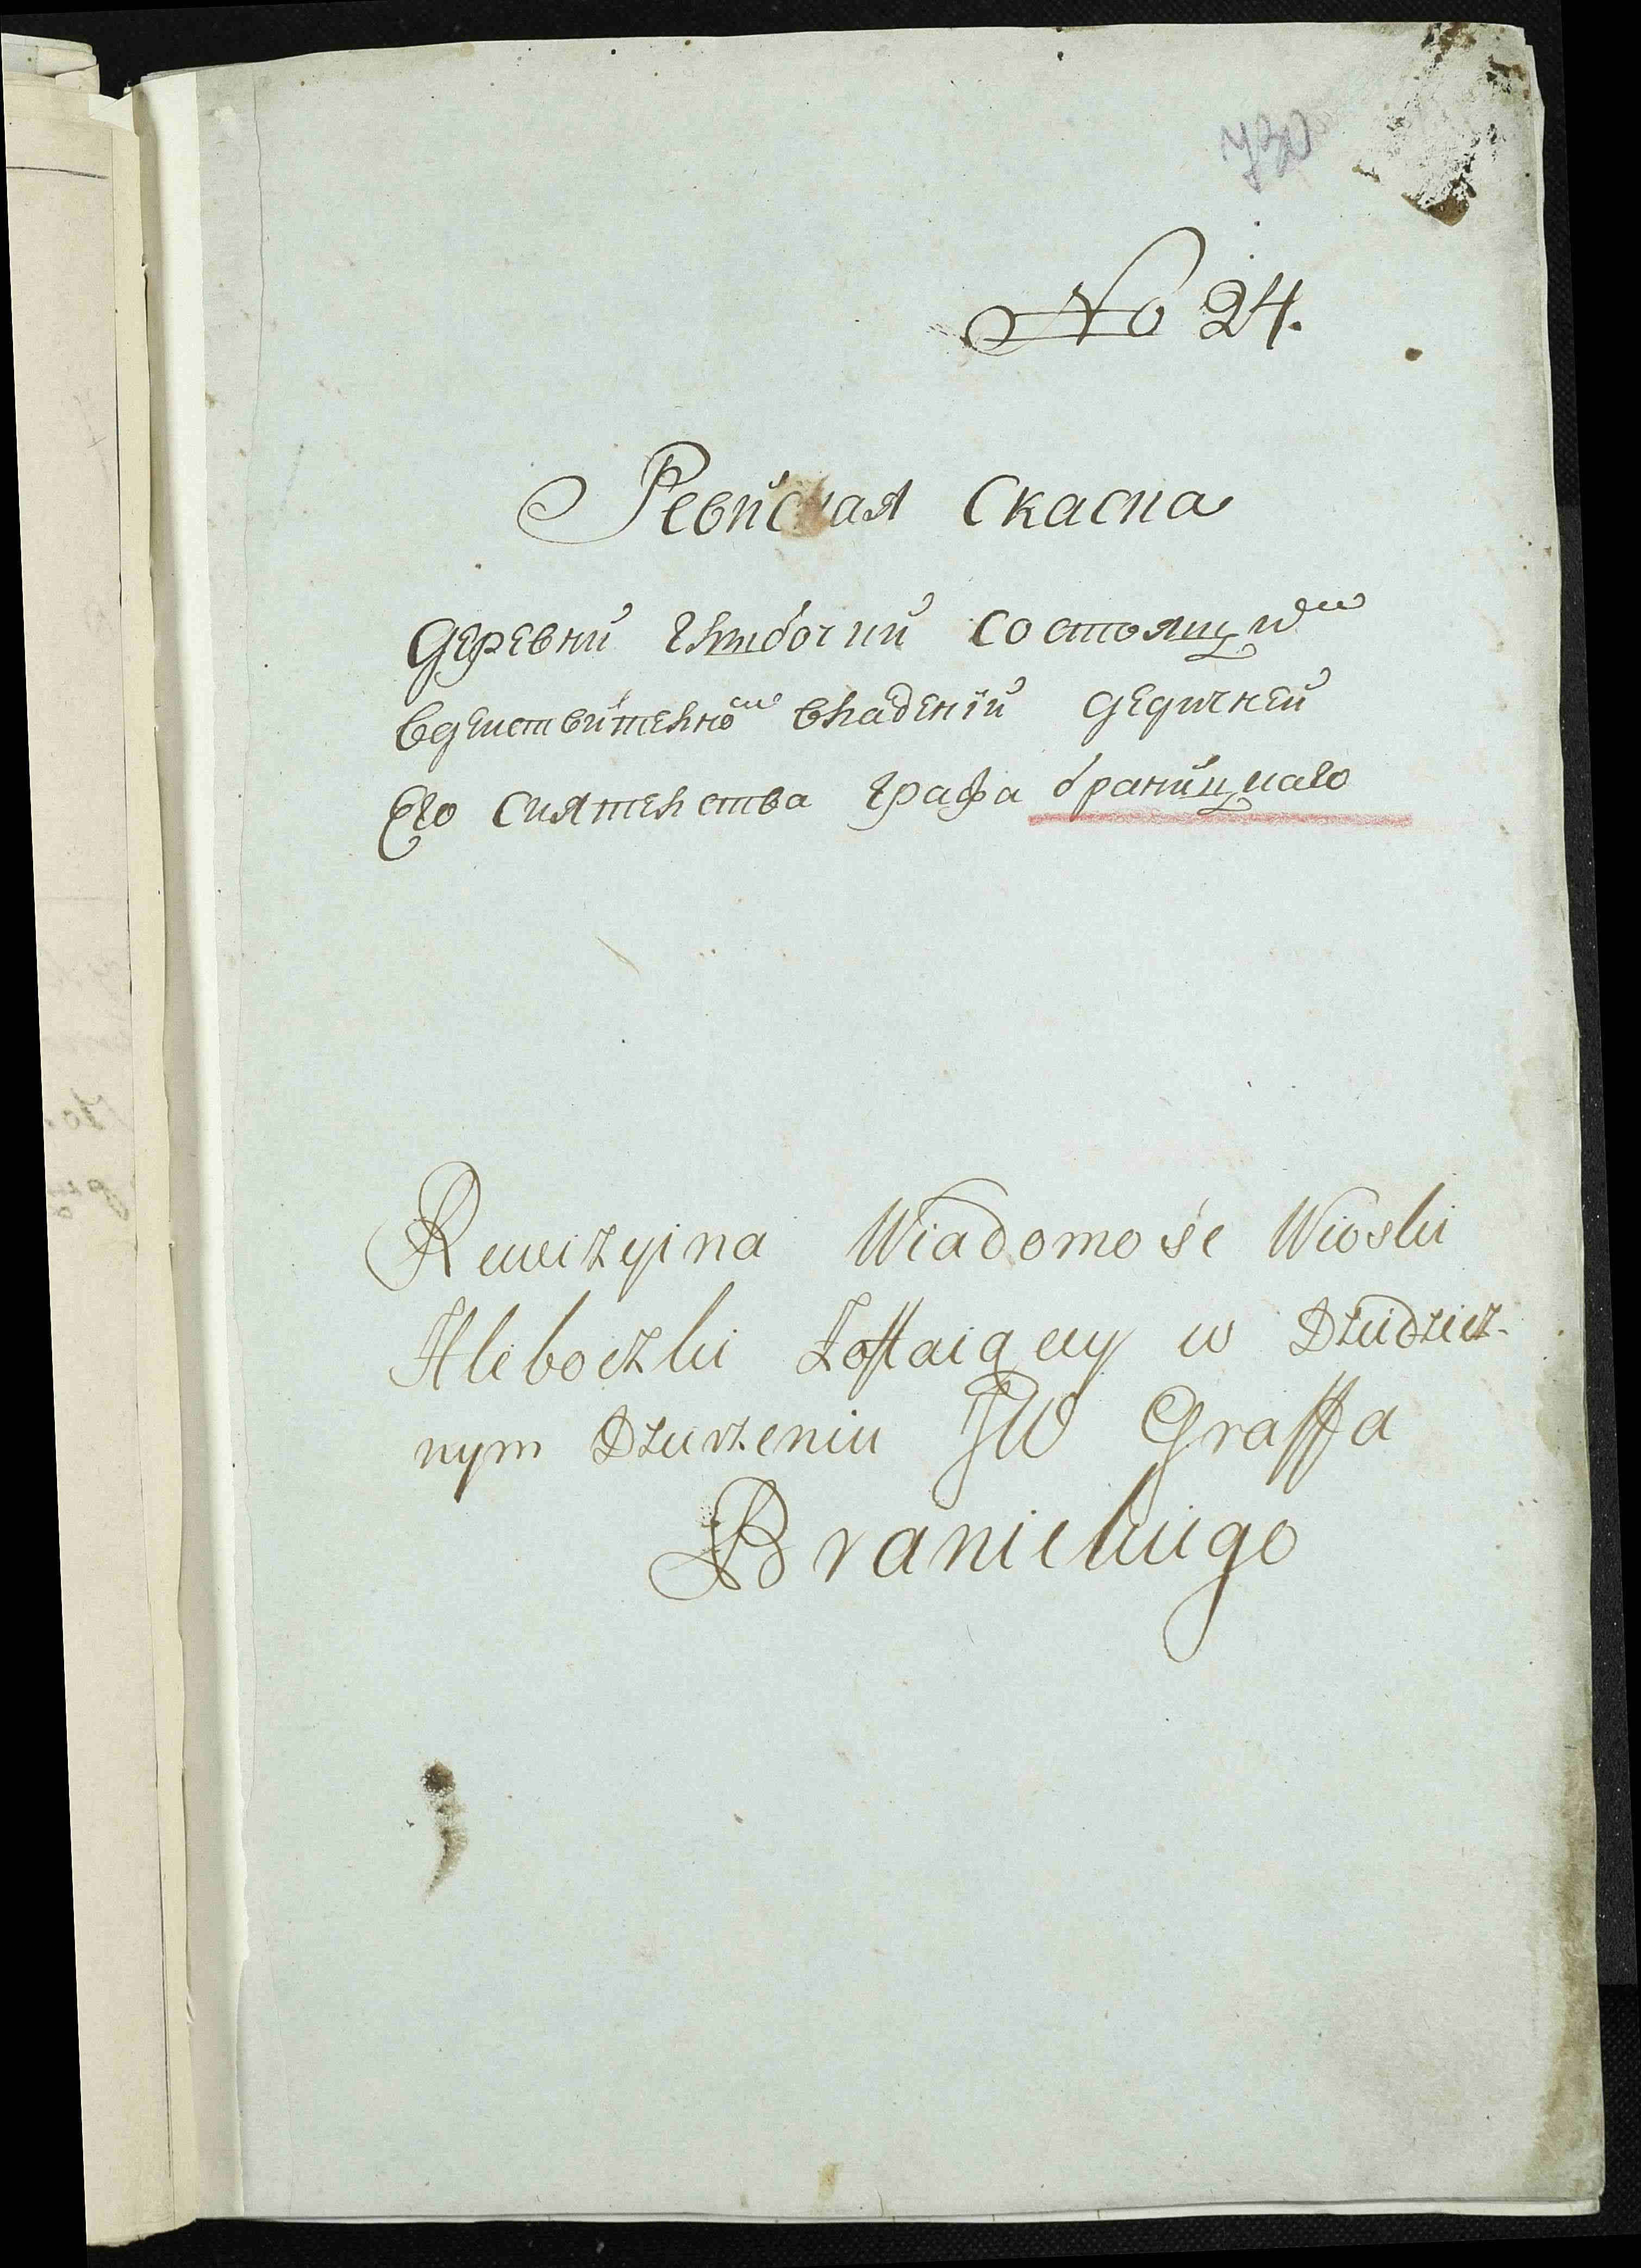 730
No 24.
Ревиская Скаска
деревни глыбочки состоящией
вдеиствителной владении дедичней
Его Сиятелства графа браницкаго
Rewizyina Wiadomość Wioski
Hleboczki Zostaiącey w Dziedzicz-
nym Dzierżeniu JW Graffa
Branickiego